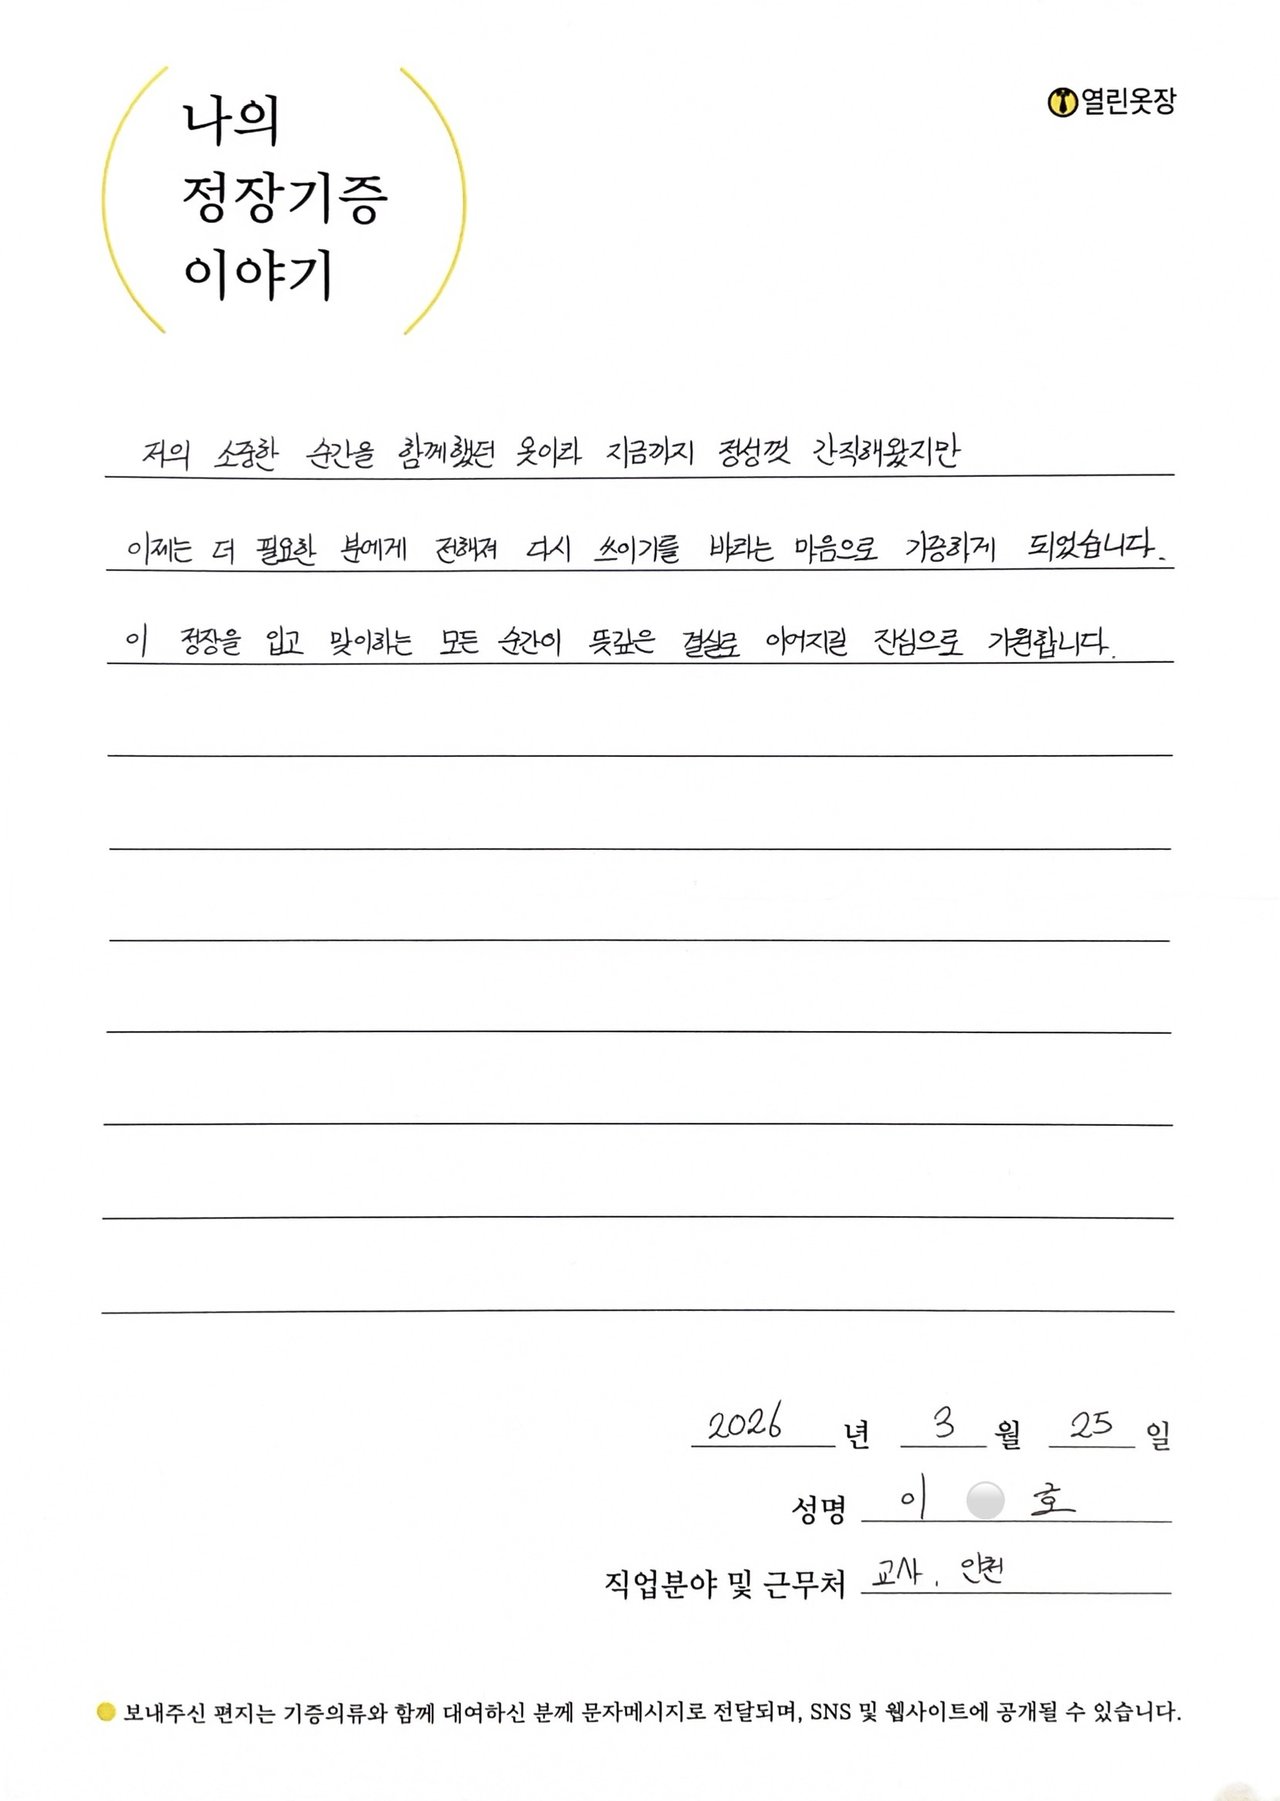 나의
정장기증
이야기
열린옷장
저의 소중한 순간을 함께했던 옷이라 지금까지 정성껏 간직해왔지만
이제는 더 필요한 분에게 전해져 다시 쓰이기를 바라는 마음으로 기증하게 되었습니다.
이 정장을 입고 맞이하는 모든 순간이 뜻깊은 결실로 이어지길 진심으로 기원합니다.
2026 년 3 월 25 일
성명 이 호
직업분야 및 근무처 교사, 인천
보내주신 편지는 기증의류와 함께 대여하신 분께 문자메시지로 전달되며, SNS 및 웹사이트에 공개될 수 있습니다.